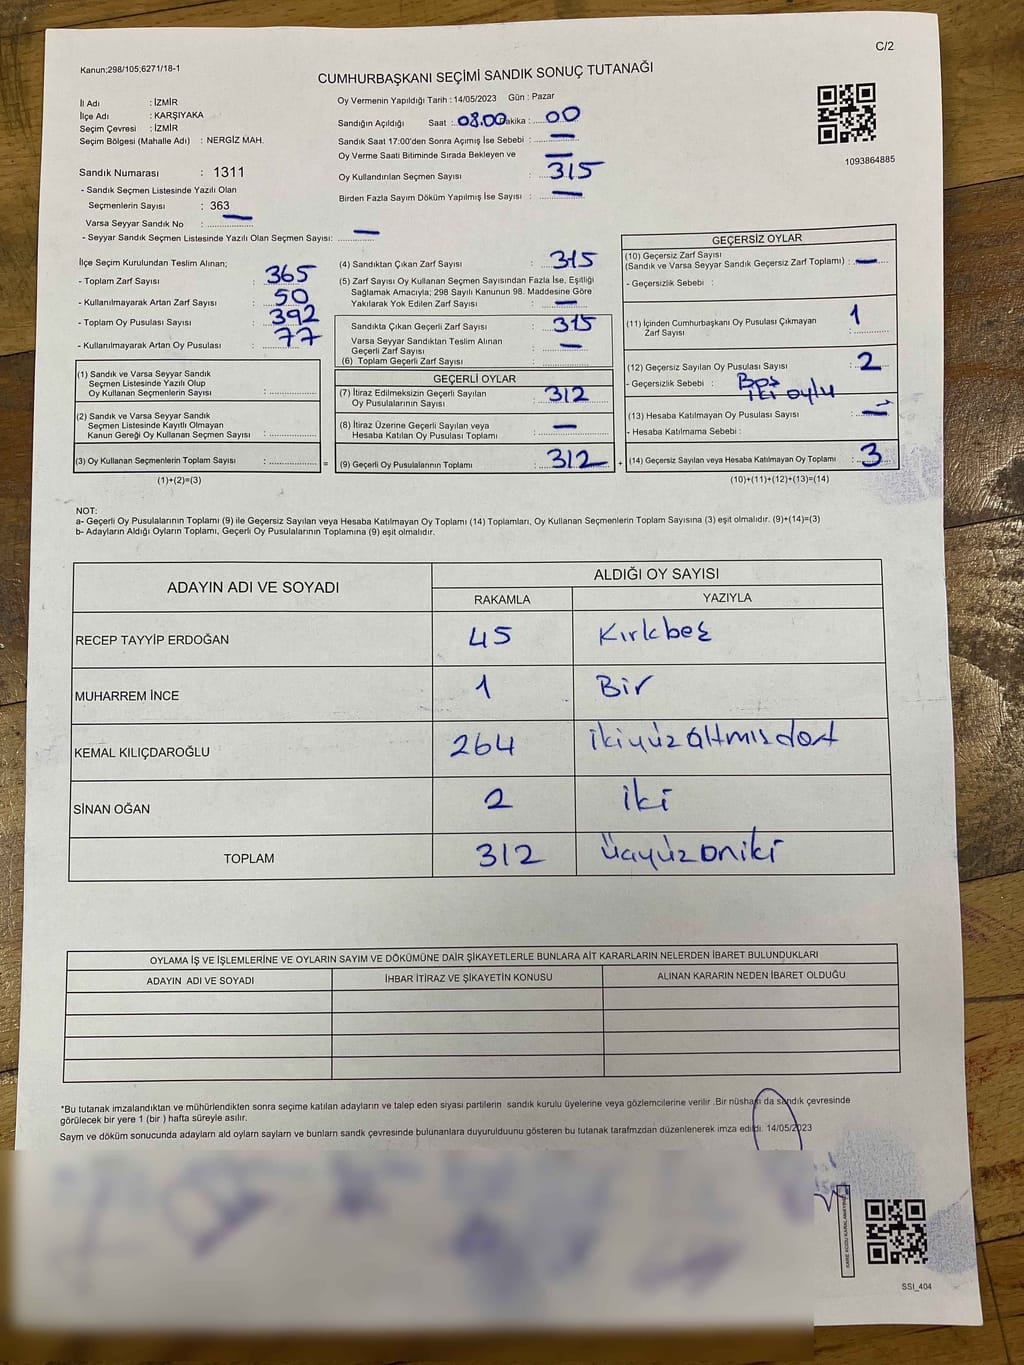 C/2
Kanun;298/105;6271/18-1
CUMHURBAŞKANI SEÇİMİ SANDIK SONUÇ TUTANAĞI
İl Adı : İZMİR
İlçe Adı : KARŞIYAKA
Seçim Çevresi : İZMİR
Seçim Bölgesi (Mahalle Adı) : NERGİZ MAH.
Sandık Numarası : 1311
- Sandık Seçmen Listesinde Yazılı Olan
Seçmenlerin Sayısı : 363
Varsa Seyyar Sandık No : —
- Seyyar Sandık Seçmen Listesinde Yazılı Olan Seçmen Sayısı: —
Oy Vermenin Yapıldığı Tarih : 14/05/2023 Gün : Pazar
Sandığın Açıldığı Saat : 08.00 Dakika : 00
Sandık Saat 17:00'den Sonra Açımış İse Sebebi : —
Oy Verme Saati Bitiminde Sırada Bekleyen ve —
Oy Kullandırılan Seçmen Sayısı : 315
Birden Fazla Sayım Döküm Yapılmış İse Sayısı : —
1093864885
İlçe Seçim Kurulundan Teslim Alınan;
- Toplam Zarf Sayısı : 365
- Kullanılmayarak Artan Zarf Sayısı : 50
- Toplam Oy Pusulası Sayısı : 392
- Kullanılmayarak Artan Oy Pusulası : 77
(1) Sandık ve Varsa Seyyar Sandık
Seçmen Listesinde Yazılı Olup
Oy Kullanan Seçmenlerin Sayısı :
(2) Sandık ve Varsa Seyyar Sandık
Seçmen Listesinde Kayıtlı Olmayan
Kanun Gereği Oy Kullanan Seçmen Sayısı :
(3) Oy Kullanan Seçmenlerin Toplam Sayısı : =
(1)+(2)=(3)
(4) Sandıktan Çıkan Zarf Sayısı : 315
(5) Zarf Sayısı Oy Kullanan Seçmen Sayısından Fazla İse, Eşitliği
Sağlamak Amacıyla; 298 Sayılı Kanunun 98. Maddesine Göre
Yakılarak Yok Edilen Zarf Sayısı : —
Sandıkta Çıkan Geçerli Zarf Sayısı : 315
Varsa Seyyar Sandıktan Teslim Alınan
Geçerli Zarf Sayısı : —
(6) Toplam Geçerli Zarf Sayısı :
GEÇERLİ OYLAR
(7) İtiraz Edilmeksizin Geçerli Sayılan
Oy Pusulalarının Sayısı : 312
(8) İtiraz Üzerine Geçerli Sayılan veya
Hesaba Katılan Oy Pusulası Toplamı : —
(9) Geçerli Oy Pusulalarının Toplamı : 312 +
GEÇERSİZ OYLAR
(10) Geçersiz Zarf Sayısı
(Sandık ve Varsa Seyyar Sandık Geçersiz Zarf Toplamı) : —
- Geçersizlik Sebebi :
(11) İçinden Cumhurbaşkanı Oy Pusulası Çıkmayan 1
Zarf Sayısı :
(12) Geçersiz Sayılan Oy Pusulası Sayısı : 2
- Geçersizlik Sebebi : Boş
iki oylu
(13) Hesaba Katılmayan Oy Pusulası Sayısı : —
- Hesaba Katılmama Sebebi :
(14) Geçersiz Sayılan veya Hesaba Katılmayan Oy Toplamı : 3
(10)+(11)+(12)+(13)=(14)
NOT:
a- Geçerli Oy Pusulalarının Toplamı (9) ile Geçersiz Sayılan veya Hesaba Katılmayan Oy Toplamı (14) Toplamları, Oy Kullanan Seçmenlerin Toplam Sayısına (3) eşit olmalıdır. (9)+(14)=(3)
b- Adayların Aldığı Oyların Toplamı, Geçerli Oy Pusulalarının Toplamına (9) eşit olmalıdır.
ADAYIN ADI VE SOYADI ALDIĞI OY SAYISI
RAKAMLA YAZIYLA
RECEP TAYYİP ERDOĞAN 45 Kırkbeş
MUHARREM İNCE 1 Bir
KEMAL KILIÇDAROĞLU 264 ikiyüzaltmışdört
SİNAN OĞAN 2 iki
TOPLAM 312 üçyüzoniki
OYLAMA İŞ VE İŞLEMLERİNE VE OYLARIN SAYIM VE DÖKÜMÜNE DAİR ŞİKAYETLERLE BUNLARA AİT KARARLARIN NELERDEN İBARET BULUNDUKLARI
ADAYIN ADI VE SOYADI İHBAR İTİRAZ VE ŞİKAYETİN KONUSU ALINAN KARARIN NEDEN İBARET OLDUĞU
*Bu tutanak imzalandıktan ve mühürlendikten sonra seçime katılan adayların ve talep eden siyasi partilerin sandık kurulu üyelerine veya gözlemcilerine verilir .Bir nüshası da sandık çevresinde
görülecek bir yere 1 (bir ) hafta süreyle asılır.
Sayım ve döküm sonucunda adaylarn ald oylarn saylarn ve bunlarn sandk çevresinde bulunanlara duyurulduunu gösteren bu tutanak tarafmzdan düzenlenerek imza edildi. 14/05/2023
SSI_404